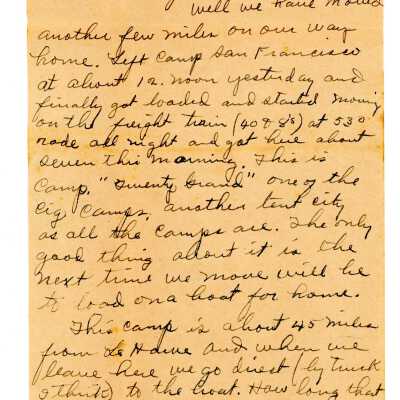 Well we have moved
another few miles on our way
home. Left Camp San Francisco
at about 12. noon yesterday and
finally got loaded and started moving
on the freight train (40 & 8's) at 530
rode all night and got here about
seven this morning. This is
Camp, "Twenty Grand" one of the
Cig Camps, another tent city
as all the camps are. The only
good thing about it is the
next time we move will be
to load on a boat for home.
This camp is about 45 miles
from Le Havre and when we
leave here we go direct (by truck
I think) to the boat. How long that